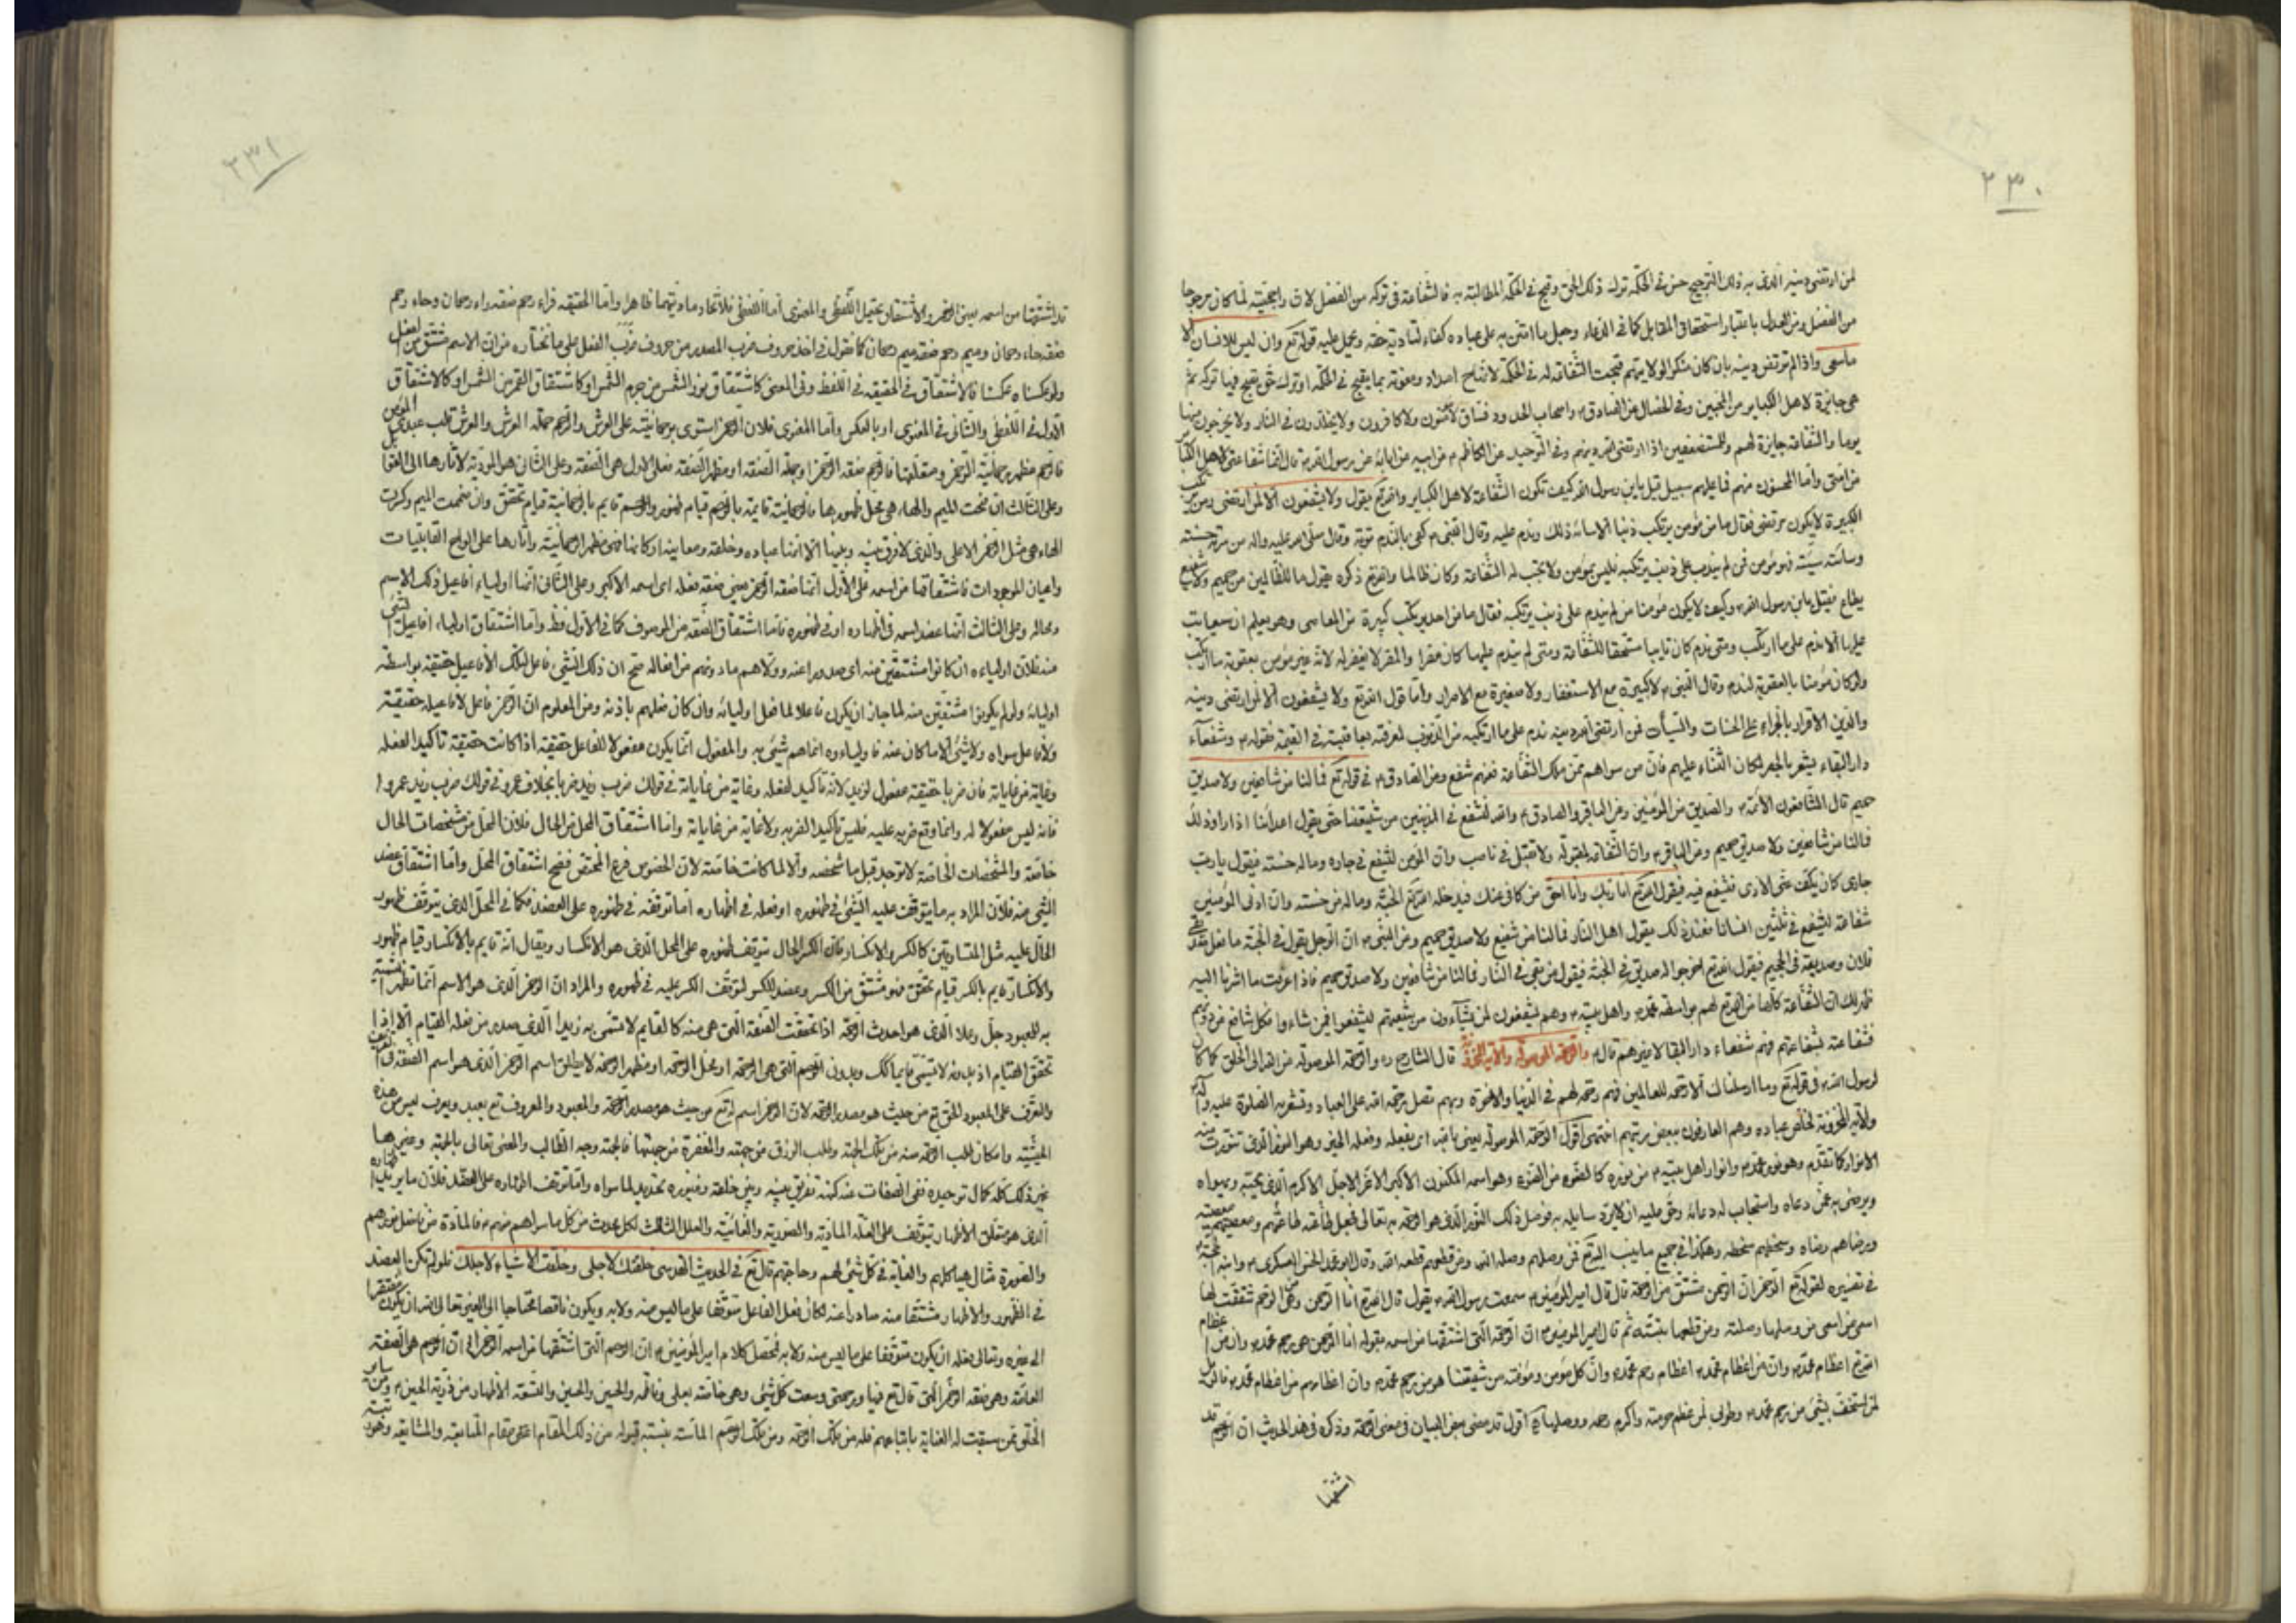 ٢٣٠
لمن ارتضى دينه الذى به ذلك الترجيح حسن فى الحكمة ترك ذلك الحق وقبح فى الحكمة المطالبة به فالشفاعة فى تركه من الفضل لان راجحيته لما كان مرجوحا
من الفضل ومن العدل باعتبار استحقاق المقابل كما فى الدعاء وجعل ما امتن به على عباده كفاء لتادية حقه ويحمل عليه قوله تع وان ليس للانسان الا
ماسعى واذا لم يرتض دينه بان كان منكرا لولايتهم قبحت الشفاعة له فى الحكمة
هى جايزة لاهل الكباير من المحبين وفى الخصال عن الصادق ع واصحاب الحدود فساق لامؤمنون ولا كافرون ولا يخلدون فى النار ولا يخرجون منها
يوما والشفاعة جايزة لهم وللمستضعفين اذا ارتضى الله دينهم وفى التوحيد عن الكاظم ع عن ابيه عن ابائه عن رسول الله ص قال انما شفاعتى لاهل الكبائر
من امتى واما المحسنون منهم فما عليهم سبيل قيل ياابن رسول الله كيف تكون الشفاعة لاهل الكباير والله تع يقول ولا يشفعون الا لمن ارتضى ومن يرتكب
الكبيرة لايكون مرتضى فقال ما من مؤمن يرتكب ذنبا الا ساءه ذلك وندم عليه وقال النبى ص كفى بالندم توبة وقال صلى الله عليه واله من سرته حسنته
وساءته سيئة فهو مؤمن فمن لم يندم على ذنب يرتكبه فليس بمؤمن ولا تجب له الشفاعة وكان ظالما والله تع ذكره يقول ما للظالمين من حميم ولا شفيع
يطاع فقيل ياابن رسول الله وكيف لايكون مؤمنا من لم يندم على ذنب يرتكبه فقال ما من احد يرتكب كبيرة من المعاصى وهو يعلم ان سيعاقب
عليها الا ندم على ما ارتكب ومتى ندم كان تايبا مستحقا للشفاعة ومتى لم يندم عليها كان مصرا والمصر لايغفر له لانه غير مؤمن بعقوبة ما ارتكب
ولو كان مؤمنا بالعقوبة لندم وقال النبى ص لاكبيرة مع الاستغفار ولا صغيرة مع الاصرار واما قول الله تع ولا يشفعون الا لمن ارتضى دينه
والدين الاقرار بالجزاء على الحسنات والسيئات فمن ارتضى الله دينه ندم على ما ارتكبه من الذنوب لمعرفته بعاقبته فى القيمة فقوله ع وشفعآء
دار البقاء يشعر بالحصر لمكان الثناء عليهم فان من سواهم ممن ملك الشفاعة فعنهم شفع وعن الصادق ع فى قوله تع فما لنا من شافعين ولا صديق
حميم قال الشافعون الائمة ع والصديق من المؤمنين وعن الباقر والصادق ع والله لنشفع فى المذنبين من شيعتنا حتى يقول اعدائنا اذا راوا ذلك
فمالنا من شافعين ولا صديق حميم وعن الباقر ع وان الشفاعة لمقبولة ولا تقبل فى ناصب وان المؤمن ليشفع فى جاره وماله حسنة فيقول يارب
جارى كان يكف عنى الاذى فيشفع فيه فيقول الله تع انا ربك وانا احق من كافى عنك فيدخله الله تع الجنة وماله من حسنة وان ادنى المؤمنين
شفاعة ليشفع فى ثلثين انسانا فعند ذلك يقول اهل النار فمالنا من شفيع ولا صديق حميم وعن النبى ص ان الرجل يقول فى الجنة ما فعل صديقى
فلان وصديقه فى الجحيم فيقول الله تع اخرجوا له صديقه فى الجنة فيقول من بقى فى النار فمالنا من شافعين ولا صديق حميم فاذا عرفت ما اشرنا اليه
ظهر لك ان الشفاعة كلها من الله تع لهم بواسطة محمد ص واهل بيته ع وهم يشفعون لمن يشآءون من شيعتهم ليشفعوا فيمن شاءوا فكل شافع من دونهم
فشفاعته بشفاعتهم فهم شفعاء دار البقا لاغيرهم قال ع والرحمة الموصولة والاية المخزونة قال الشارح ره والرحمة الموصولة من الله الى الخلق كما كان
لرسول الله ص فى قوله تع وما ارسلناك الا رحمة للعالمين فهم رحمة لهم فى الدنيا والاخرة وبهم تصل رحمة الله على العباد وتشعر به الصلوة عليه وآله
والاية المخزونة لخلص عباده وهم العارفون ببعض رتبتهم انتهى اقول الرحمة الموصولة يعنى بالله اى بفعله وفعله الخير وهو النور الذى تنورت منه
الانوار كما تقدم وهو نور محمد ص وانوار اهل بيته ع من نوره كالضوء من الضوء وهو اسمه المكنون الاكبر الاعز الاجل الاكرم الذى يحبه ويهواه
ويرضى به عمن دعاه واستجاب له دعائه وحق عليه ان لايرد سايله به فوصل ذلك النور الذى هو الرحمة به تعالى فجعل طاعته طاعتهم ومعصيتهم معصيته
ورضاهم رضاه وسخطهم سخطه وهكذا فى جميع ماينسب اليه تع فمن وصلهم وصله الله ومن قطعهم قطعه الله وقال ابو محمد الحسن العسكرى ع وابنه الحجة ع
فى تفسيره لقوله تع الرحمن ان الرحمن مشتق من الرحمة قال قال امير المؤمنين ع سمعت رسول الله ص يقول قال الله تع انا الرحمن وهى الرحم شققت لها
اسمى من اسمى من وصلها وصلته ومن قطعها بتته ثم قال امير المؤمنين ع ان الرحم التى اشتقها من اسمه بقوله انا الرحمن هى رحم محمد ص وان من اعظام
الله تع اعظام محمد ص وان من اعظام محمد ص اعظام رحم محمد ص وان كل مؤمن ومؤمنة من شيعتنا هو من رحم محمد ص وان اعظامهم من اعظام محمد ص فالويل
لمن استخف بشئ من رحم محمد ص وطوبى لمن عظم حرمته واكرم رحمه ووصلها اقول قد مضى بعض البيان فى معنى الرحمة وذكره فى هذا الحديث ان الرحم قد
اشتقها
٢٣١
قد اشتقها من اسمه يعنى الرحمن والاشتقاق يحتمل اللفظى والمعنوى اما اللفظى فلاتحاد مادتيهما ظاهرا واما الحقيقة فراء رحم صفة راء رحمان وحاء رحم
صفة حاء رحمان وميم رحم صفة ميم رحمان كما نقول فى اخذ حروف ضرب المصدر من حروف ضرب الفعل على ما نختاره من ان الاسم مشتق من الفعل
ولو عكسناه عكسنا فالاشتقاق فى الحقيقة فى اللفظ وفى المعنى كاشتقاق نور الشمس من جرم الشمس او كاشتقاق القمر من الشمس او كالاشتقاق
الاول فى اللفظى والثانى فى المعنوى او بالعكس واما المعنوى فلان الرحمن استوى برحمانيته على العرش والرحم حملة العرش والعرش قلب عبده المؤمن
فالرحم مظهر رحمانية الرحمن ومتعلقها فالرحم صفة الرحمن او محل الصفة او مظهر الصفة فعلى الاول هى الصفة وعلى الثانى هو المؤدية لاثارها الى
وعلى الثالث ان فتحت الميم والهاء هى محل ظهورها فالرحمانية قايمة بالرحم قيام ظهور والرحم قايم بالرحمانية قيام تحقق وان ضممت الميم وكسرت
الهاء هى مثل الرحمن الاعلى والذى لافرق بينه وبينها الا انها عباده وخلقه ومعانيه اركانها فهى مظهر الرحمانية واثارها على الواح القابليات
واعيان الموجودات فاشتقاقها من اسمه على الاول انها صفة الرحمن يعنى صفة فعله اى اسمه الاكبر وعلى الثانى انها اولياء افاعيل ذلك الاسم
ومحاله وعلى الثالث انها عضد اسمه فى اظهاره او فى ظهوره فاما اشتقاق الصفة من الموصوف كما فى الاول فظ واما اشتقاق اولياء افاعيل الشئ
منه فلان اولياءه ان كانوا مشتقين منه اى صدورا عنه وولاهم مادونهم من افعاله صح ان ذلك الشئ فاعل لتلك الافاعيل حقيقة بواسطة
اوليائه ولو لم يكونوا مشتقين منه لما جاز ان يكون فاعلا لما فعل اوليائه وان كان فعلهم باذنه ومن المعلوم ان الرحمن فاعل لافاعيله حقيقة
ولا فاعل سواه ولا شئ الا ما كان عنه فاولياءه انماهم شئ به والمفعول انما يكون مفعولا للفاعل حقيقة اذا كانت حقيقة تاكيدا لفعله
وغاية من غاياته فان ضربا حقيقة مفعول لزيد لانه تاكيد لفعله وغاية من غاياته فى قولك ضرب زيد ضربا بخلاف عمرو فى قولك ضرب زيد عمروا
فانه ليس مفعولا له وانما وقع ضربه عليه فليس تاكيدا لضربه ولا غاية من غاياته واما اشتقاق المحل من الحال فلان المحل من مشخصات الحال
خاصة والمشخصات الخاصة لاتوجد قبل ما تشخصه والا لما كانت خاصة لان الخصوص فرع المختص فصح اشتقاق المحل واما اشتقاق عضد
الشئ منه فلان المراد به مايتوقف عليه الشئ فى ظهوره او فعله فى اظهاره اما توقفه فى ظهوره على العضد فكما فى المحل الذى يتوقف ظهور
الحال عليه مثل المتساوقين كالكسر والانكسار فان الكسر الحال يتوقف ظهوره على المحل الذى هو الانكسار ويقال انه قايم بالانكسار قيام ظهور
والانكسار قايم بالكسر قيام تحقق فهو مشتق من الكسر وعضد للكسر لتوقف الكسر عليه فى ظهوره والمراد ان الرحمن الذى هو الاسم انما تظهر
به المعبود جل وعلا الذى هو احدث الرحمة اذا تحققت الصفة التى هى منه كالقايم لاتسمى به زيدا الذى صدر من فعله القيام الا اذا
تحقق القيام اذ بدونه لاتسمى قايما كك وبدون الرحم التى هى الرحمة او محل الرحمة او مظهر الرحمة لايطلق اسم الرحمن الذى هو اسم الصفة
والتعرف على المعبود الحق تع من حيث هو مصدر الرحمة لان الرحمن اسم له تع من حيث هو مصدر الرحمة والمعبود والمعروف تع يعبد ويعرف ليس من هذه
الحيثية وان كان طلب الرحمة منه من تلك الجهة وطلب الرزق من جهته والمغفرة من جهتها فالجهة وجه الطالب والمعنى تعالى بالجهة وغيرها
غير ذلك كله كمال توحيده نفى الصفات عنه كنهه تفريق بينه وبين خلقه وغيوره تحديد لما سواه واما توقف اظهاره على العضد فلان مايريد
الذى هو متعلق الاظهار يتوقف على العلة المادية والصورية والغائية والعلل الثالث لكل محدث من كل ماسواهم منهم ع فالمادة من فاضل نورهم
والصورة مثال هياكلهم والغاية فى كل شئ لهم وحاجتهم قال تع فى الحديث القدسى خلقتك لاجلى وخلقت الاشياء لاجلك فلو لم تكن العضد
فى الظهور والاظهار مشتقا منه صادرا عنه لكان فعل الفاعل متوقفا على ماليس منه ولا به ويكون ناقصا محتاجا الى الغير تعالى الله ان يكون مفتقرا
الى غيره وتعالى فعله ان يكون متوقفا على ماليس منه ولا به فتحصل كلام امير المؤمنين ع ان الرحم التى اشتقها من اسمه الرحمن الى ان الرحم هى الصفة
العامة وهى صفة الرحمن التى قال تع فيها ورحمتى وسعت كل شئ وهى خاصة بعلى وفاطمة والحسن والحسين والتسعة الاطهار من ذرية الحسين ع ومن ساير
الخلق ممن سبقت له العناية باتباعهم فله من تلك الرحمة ومن تلك الرحم الماسة بنسبة قبوله من ذلك المقام اعنى مقام المتابعة والمشايعة وهو